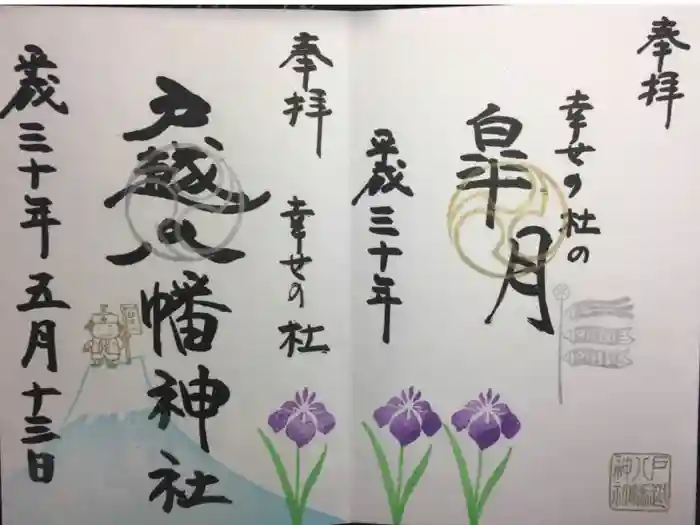 奉拝
幸せの杜の
皐月
平成三十年
奉拝
幸せの杜
戸越八幡神社
平成三十年五月十三日
戸越
八幡
神社